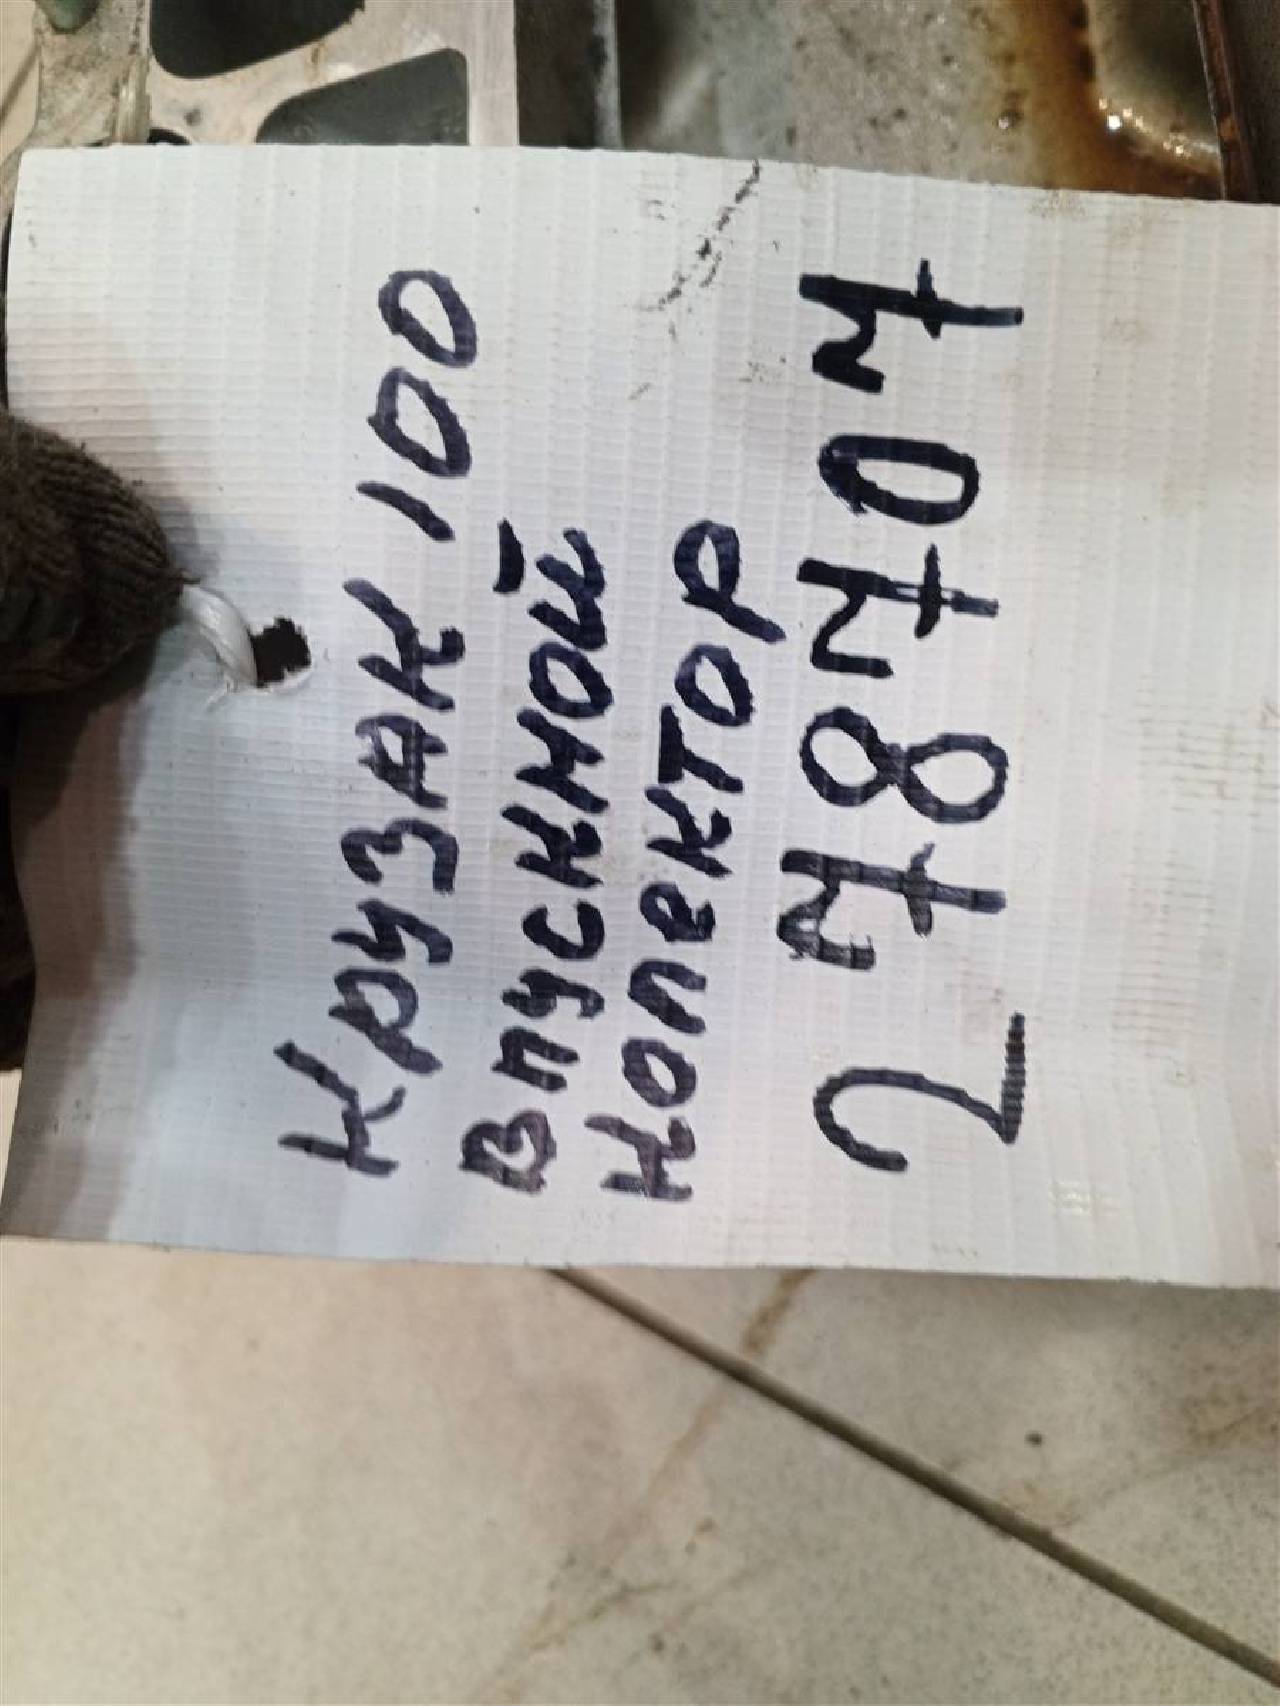 Крузак 100
Впускной
Колектор
278707